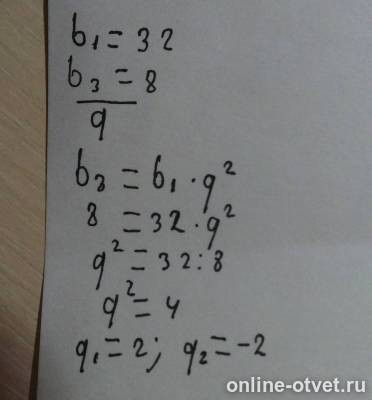 b₁ = 32
b₃ = 8
q
b₃ = b₁ · q²
8 = 32 · q²
q² = 32 : 8
q² = 4
q₁ = 2; q₂ = -2
online-otvet.ru